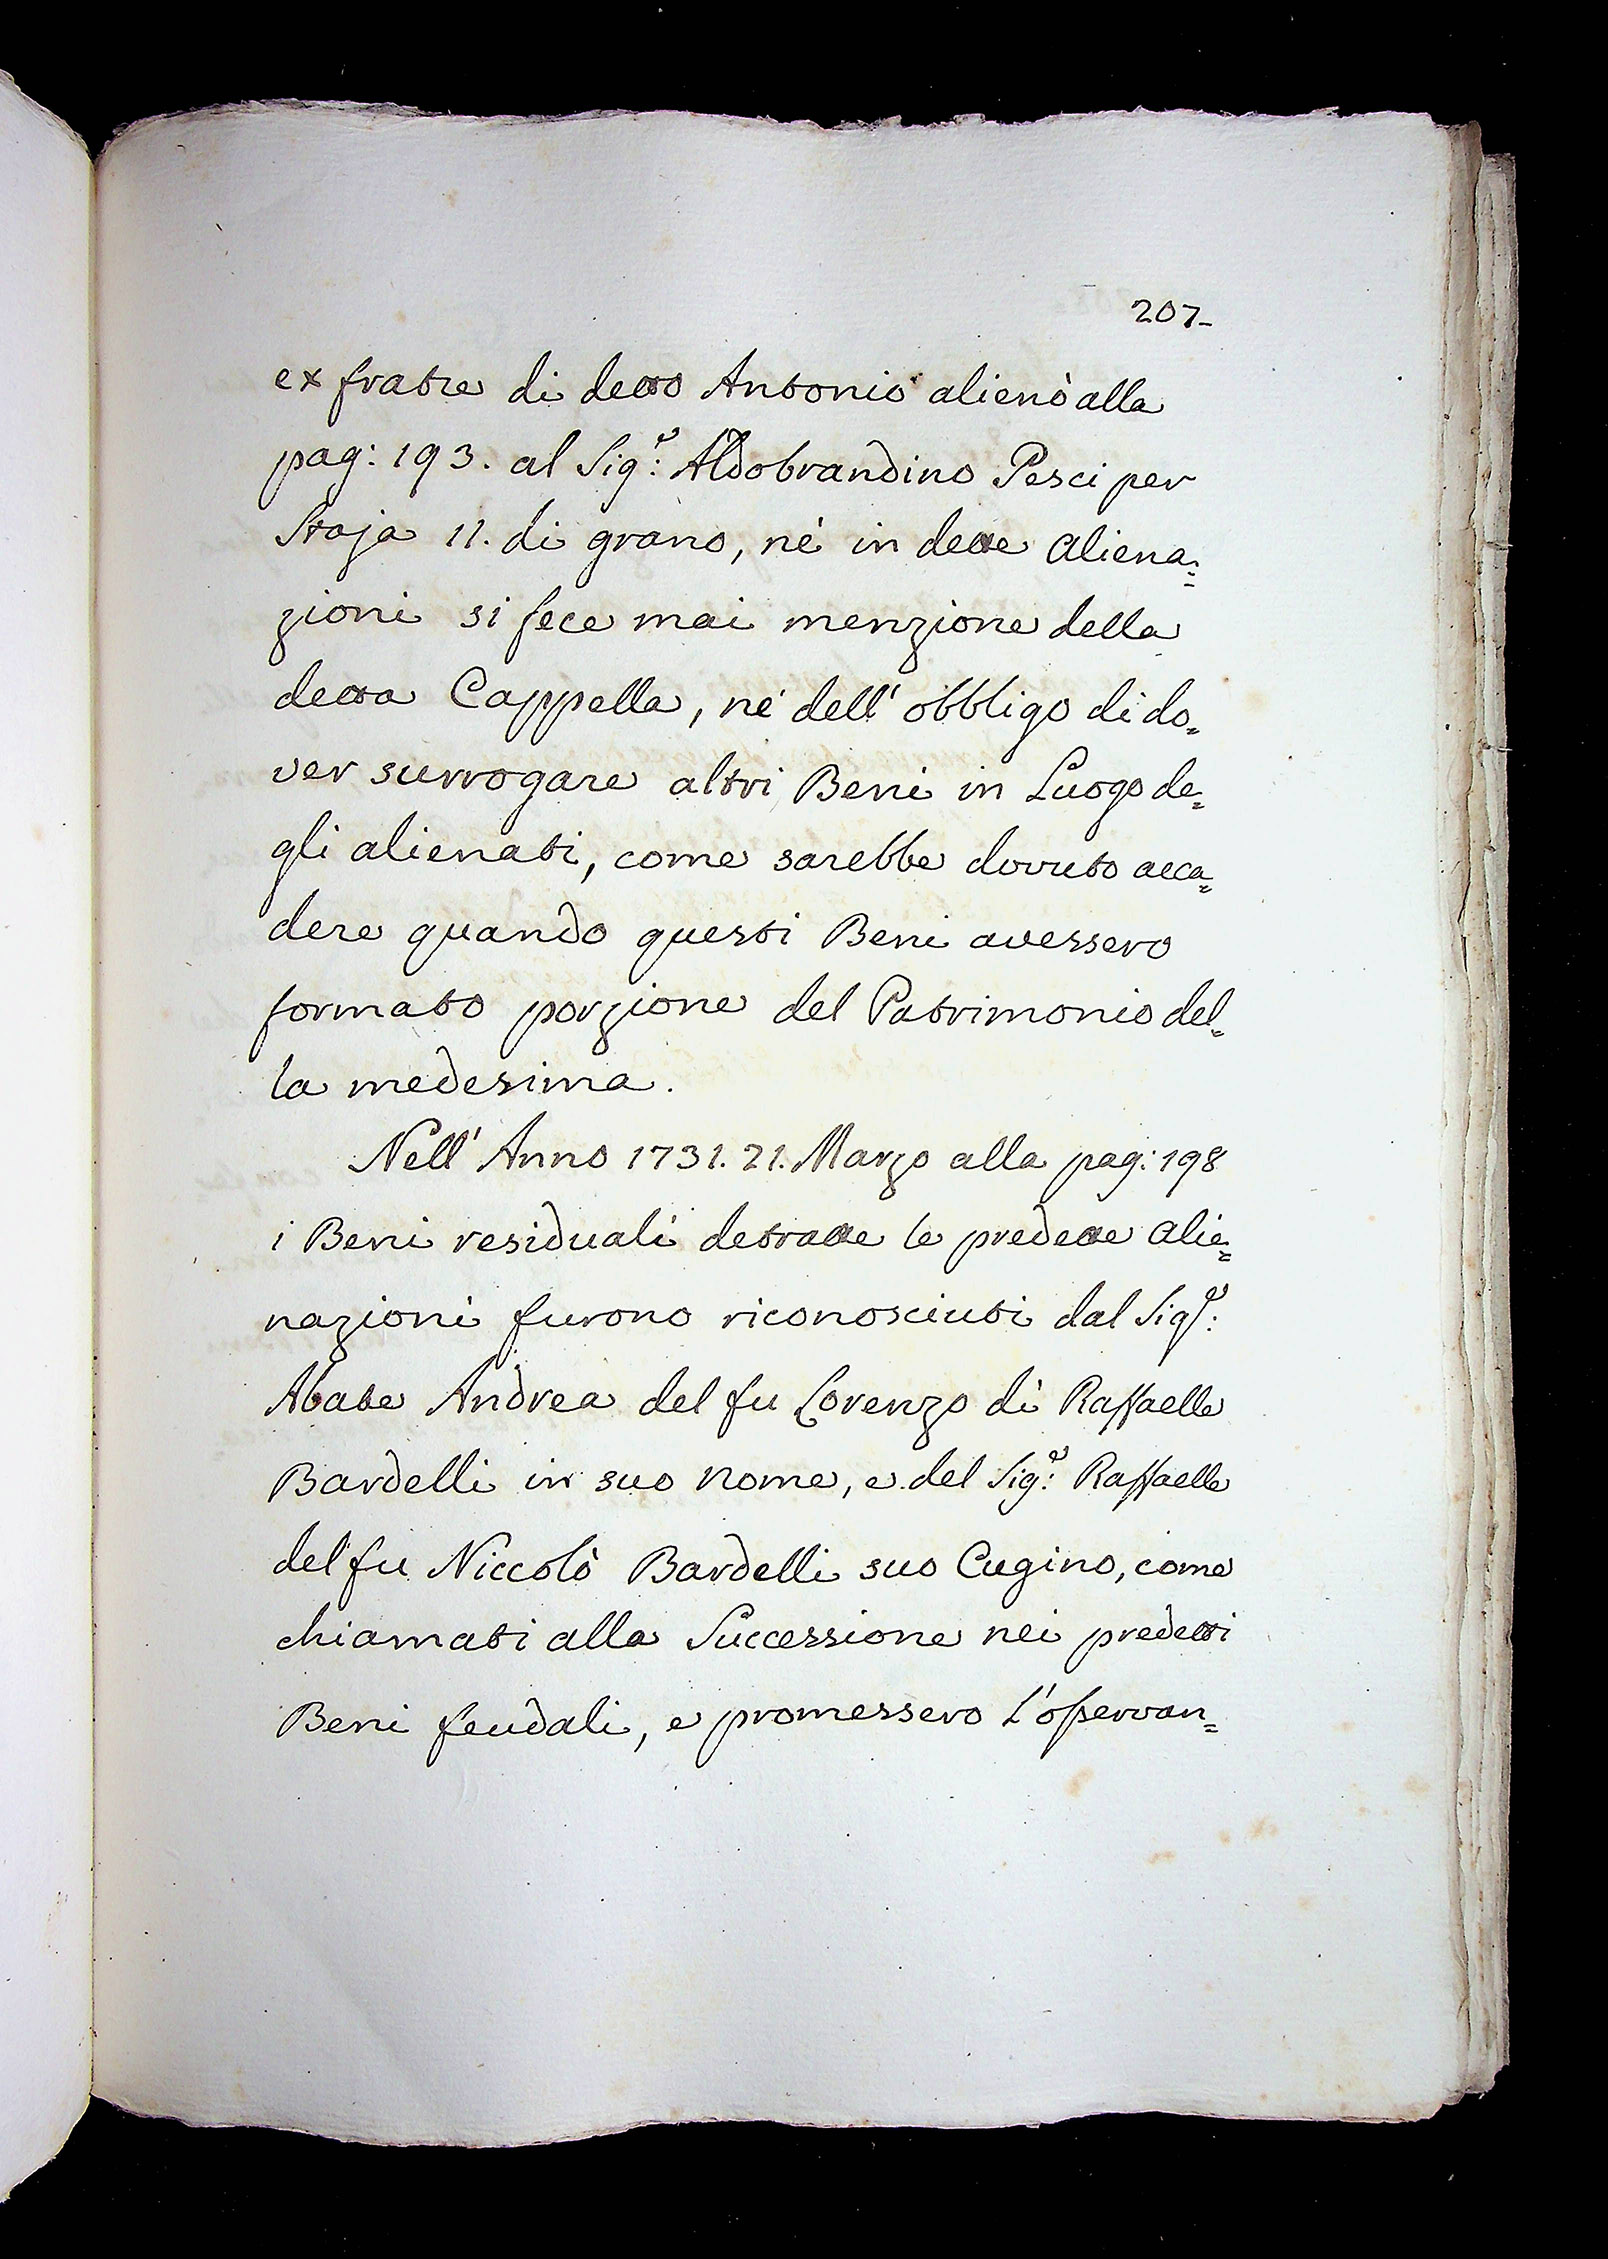 207-
ex fratre di detto Antonio alienò alla
pag: 193. al Sig.e: Aldobrandino Pesci per
Staja 11. di grano, nè in dette aliena=
zioni si fece mai menzione della
detta Cappella, né dell' obbligo di do=
ver surrogare altri Beni in Luogo de=
gli alienati, come sarebbe dovuto acca=
dere quando questi Beni avessero
formato porzione del Patrimonio del=
la medesima.
Nell' Anno 1731. 21. Marzo alla pag: 198
i Beni residuali detratte le predette alie=
nazioni furono riconosciuti dal Sig.e:
Abate Andrea del fu Lorenzo di Raffaelle
Bardelli in suo nome, e del Sig.e: Raffaelle
del fu Niccolò Bardelli suo Cugino, come
chiamati alla Successione nei predetti
Beni feudali, e promessero l'osservan=